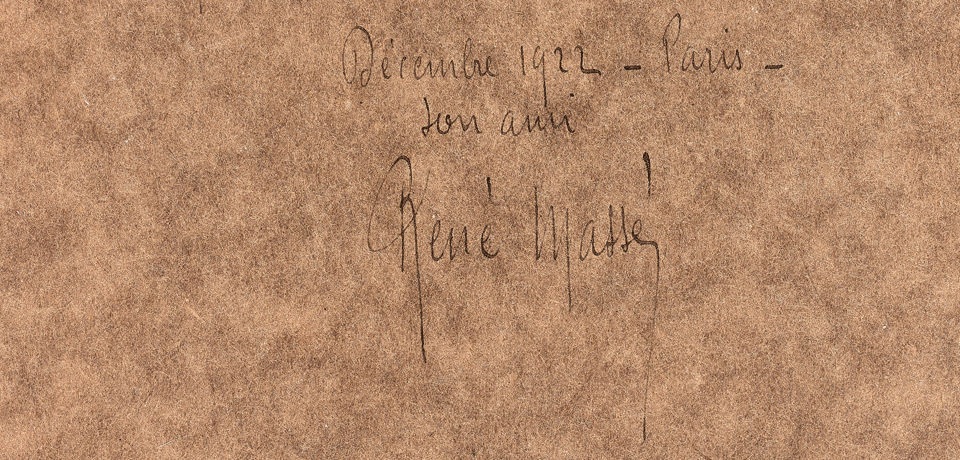 Décembre 1922 – Paris –
son ami
René Massé